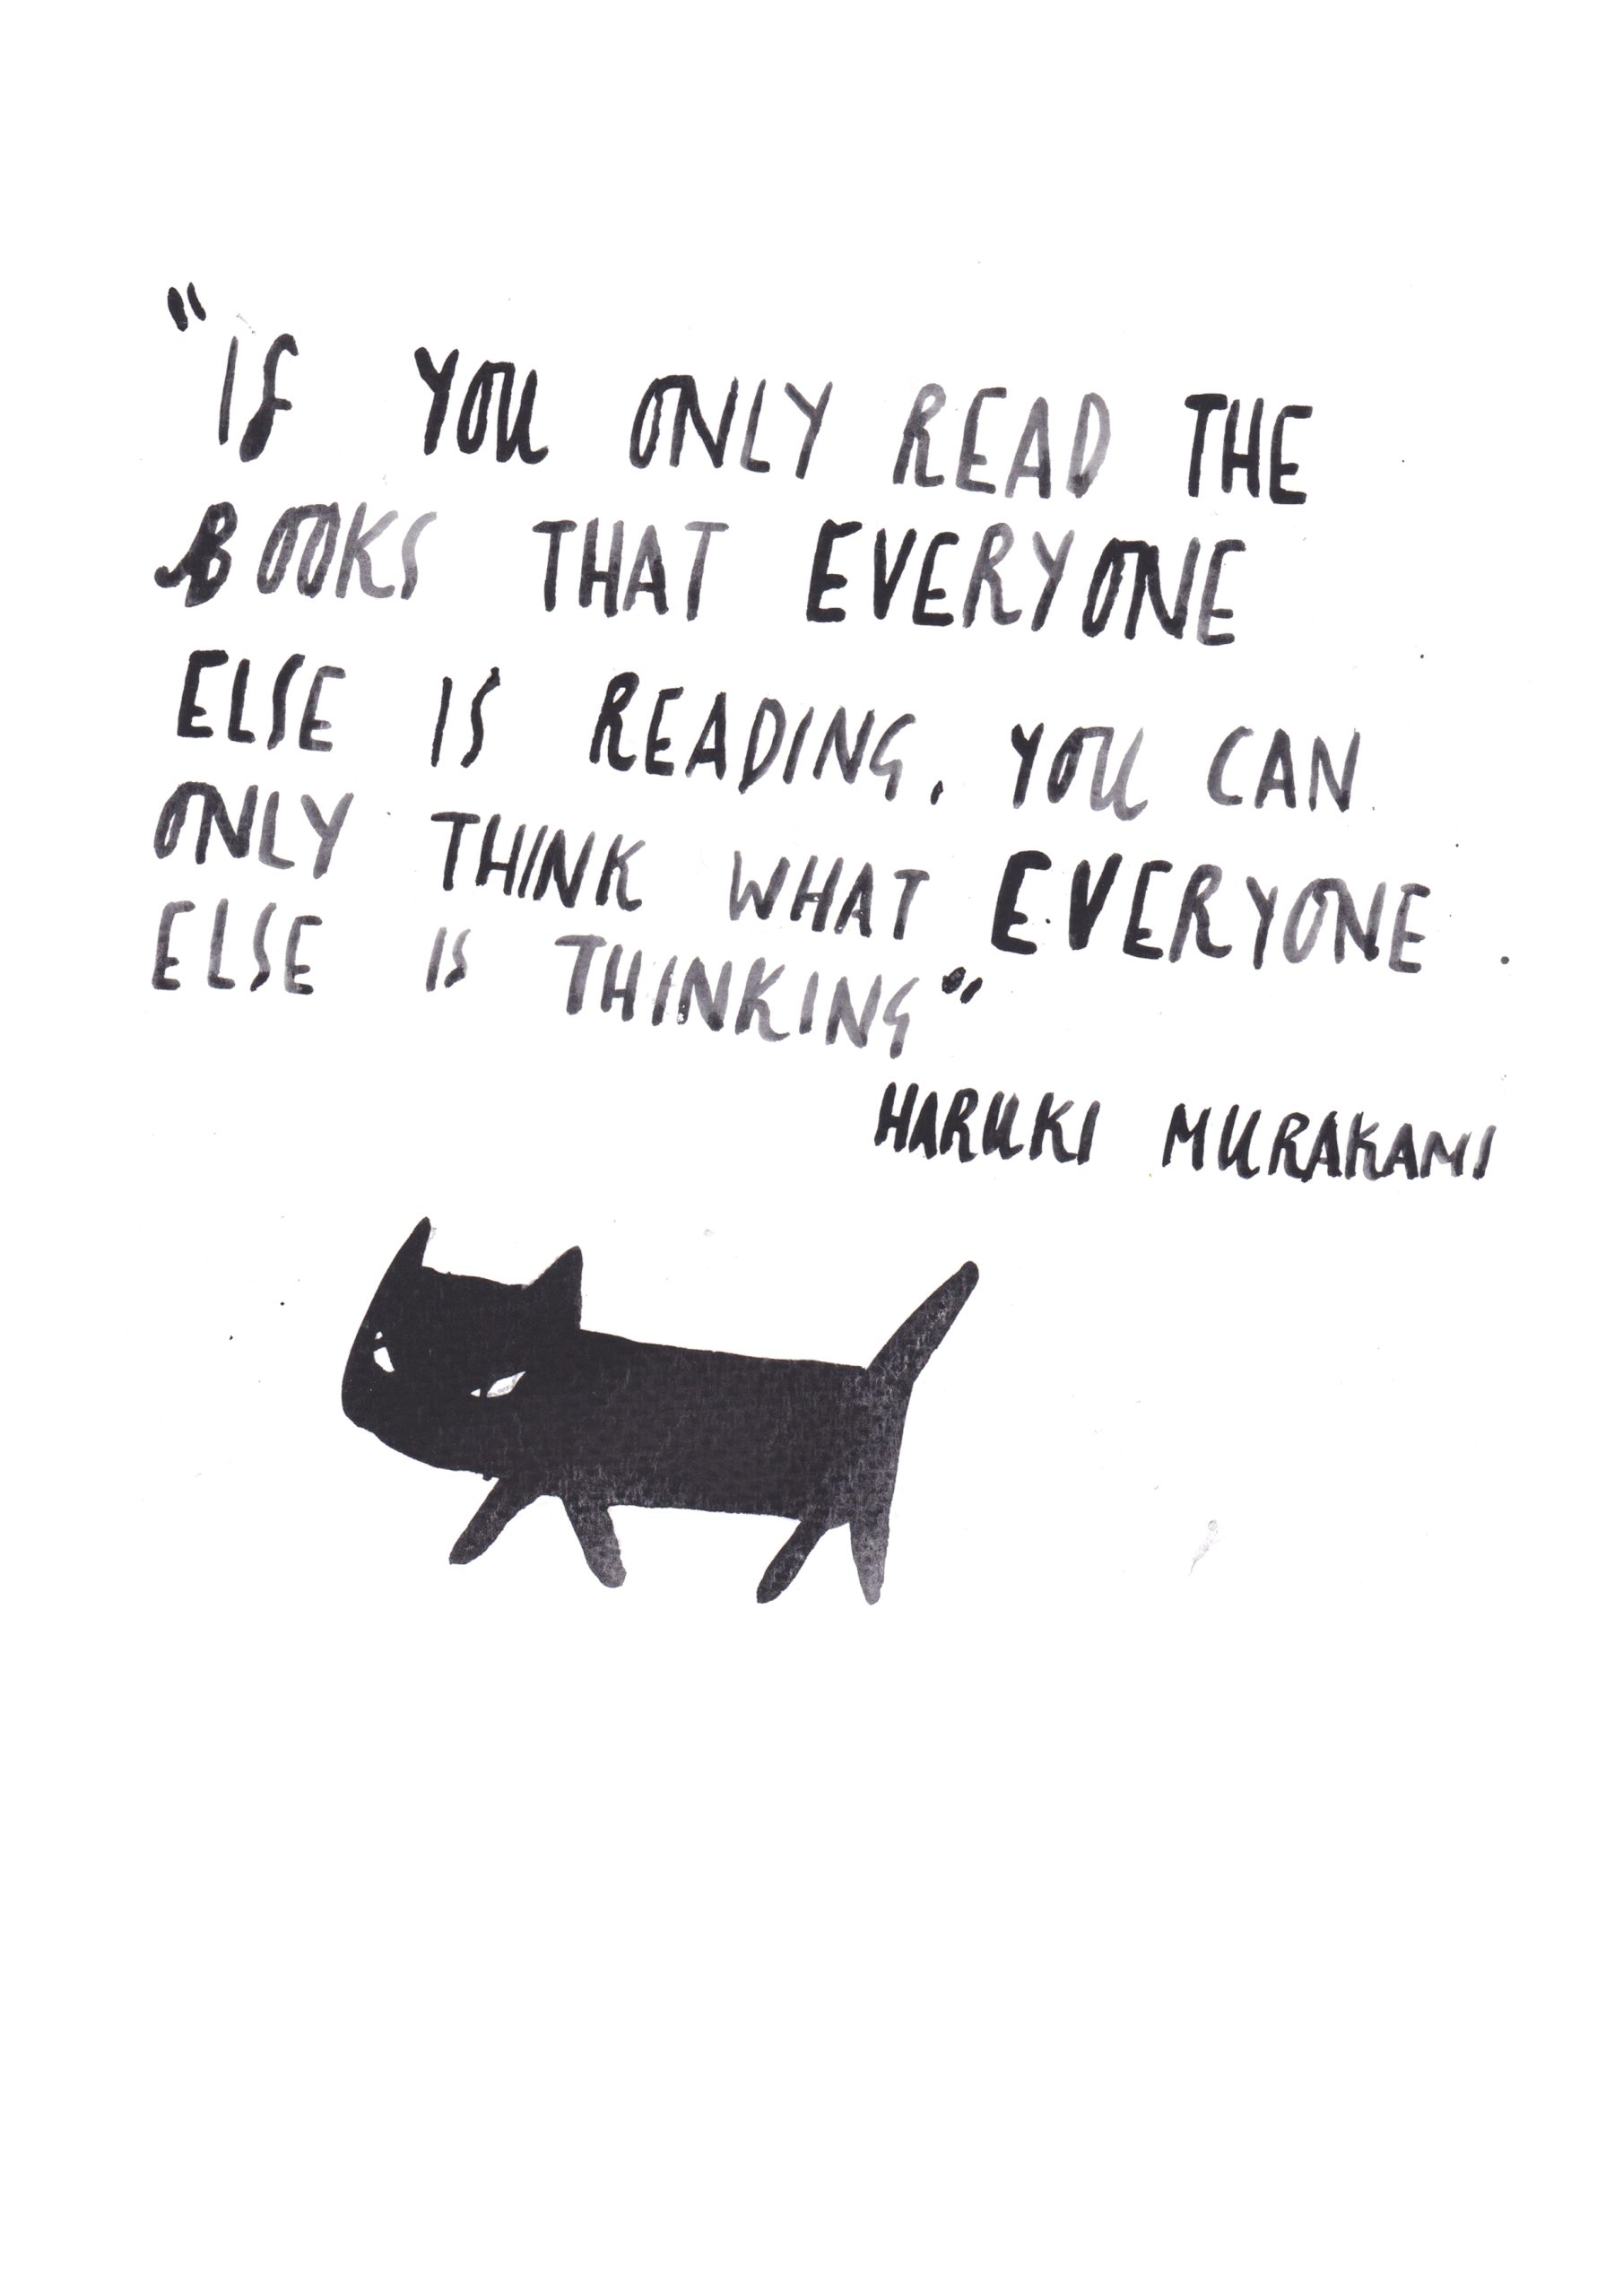 "IF YOU ONLY READ THE
BOOKS THAT EVERYONE
ELSE IS READING, YOU CAN
ONLY THINK WHAT EVERYONE
ELSE IS THINKING"
HARUKI MURAKAMI